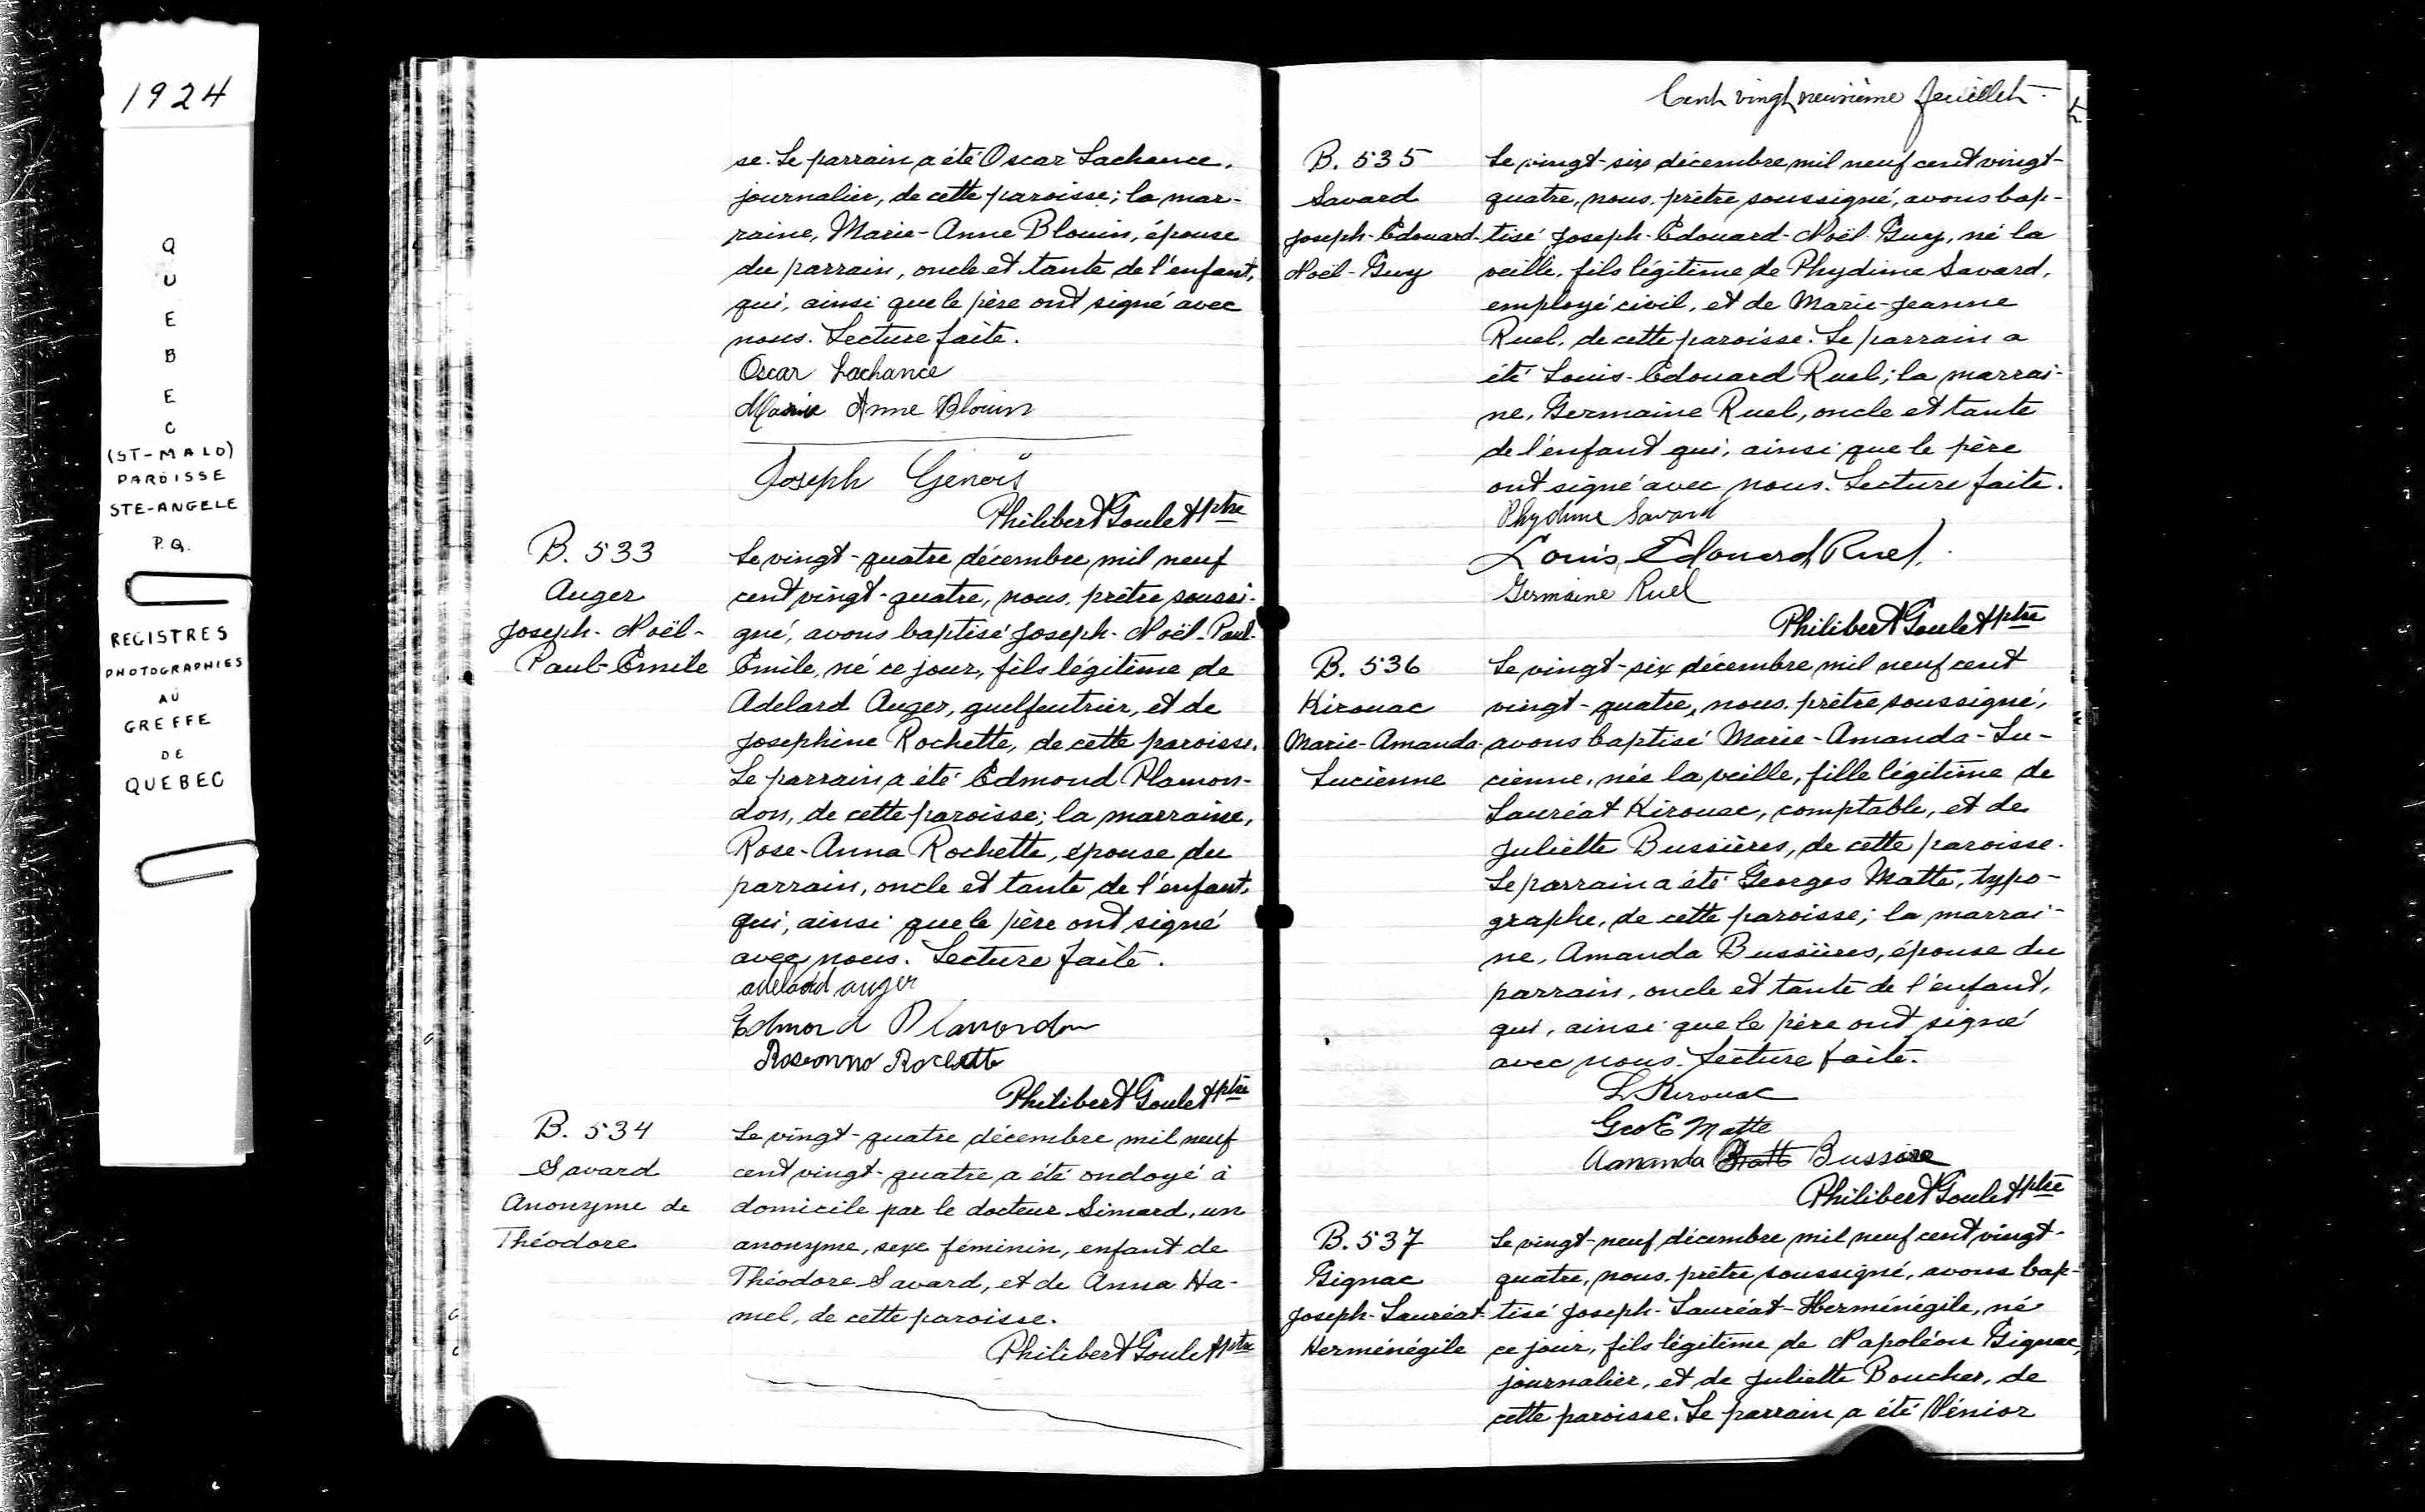 1924
QUEBEC
(ST-MALO)
PAROISSE
STE-ANGELE
P.Q.
REGISTRES
PHOTOGRAPHIES
AU
GREFFE
DE
QUEBEC
se. Le parrain a été Oscar Lachance,
journalier, de cette paroisse; la mar-
raine, Marie-Anne Blouin, épouse
du parrain, oncle et tante de l'enfant,
qui, ainsi que le père ont signé avec
nous. Lecture faite.
Oscar Lachance
Marie Anne Blouin
Joseph Genois
Philibert Goulet ptre
B. 533
Auger
Joseph-Noël-
Paul-Emile
Le vingt-quatre décembre mil neuf
cent vingt-quatre, nous, prêtre soussi-
gné, avons baptisé Joseph-Noël-Paul-
Emile, né ce jour, fils légitime de
Adelard Auger, guelfeutrier, et de
Joséphine Rochette, de cette paroisse.
Le parrain a été Edmond Plamon-
don, de cette paroisse; la marraine,
Rose-Anna Rochette, épouse du
parrain, oncle et tante de l'enfant,
qui, ainsi que le père ont signé
avec nous. Lecture faite.
adelard auger
Edmond Plamondon
Roseanna Rochette
Philibert Goulet ptre
B. 534
Savard
Anonyme de
Théodore
Le vingt-quatre décembre mil neuf
cent vingt-quatre a été ondoyé à
domicile par le docteur Simard, un
anonyme, sexe féminin, enfant de
Théodore Savard, et de Anna Ha-
mel, de cette paroisse.
Philibert Goulet ptre
Cent vingt neuvième feuillet.
B. 535
Savard
Joseph-Edouard-
Noël-Guy
Le vingt-six décembre mil neuf cent vingt-
quatre, nous, prêtre soussigné, avons bap-
tisé Joseph-Edouard-Noël-Guy, né la
veille, fils légitime de Phydime Savard,
employé civil, et de Marie-Jeanne
Ruel, de cette paroisse. Le parrain a
été Louis-Edouard Ruel; la marrai-
ne, Germaine Ruel, oncle et tante
de l'enfant qui, ainsi que le père
ont signé avec nous. Lecture faite.
Phydime Savard
Louis Edouard Ruel.
Germaine Ruel
Philibert Goulet ptre
B. 536
Kirouac
Marie-Amanda-
Lucienne
Le vingt-six décembre mil neuf cent
vingt-quatre, nous, prêtre soussigné,
avons baptisé Marie-Amanda-Lu-
cienne, née la veille, fille légitime de
Lauréat Kirouac, comptable, et de
Juliette Bussières, de cette paroisse.
Le parrain a été Georges Matte, typo-
graphe, de cette paroisse; la marrai-
ne, Amanda Bussières, épouse du
parrain, oncle et tante de l'enfant,
qui, ainsi que le père ont signé
avec nous. Lecture faite.
L Kirouac
Geo E Matte
Amanda Bussière
Philibert Goulet ptre
B. 537
Gignac
Joseph-Lauréat-
Herménégile
Le vingt-neuf décembre mil neuf cent vingt-
quatre, nous, prêtre soussigné, avons bap-
tisé Joseph-Lauréat-Herménégile, né
ce jour, fils légitime de Napoléon Gignac,
journalier, et de Juliette Boucher, de
cette paroisse. Le parrain a été Vénior